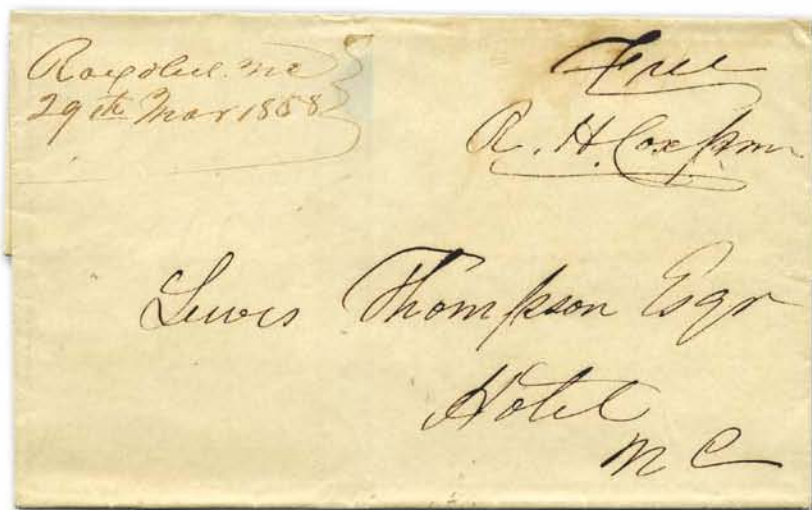 Roxobel. NC
29th Mar 1858
Free
R. H. Cox pm
Lewis Thompson Esqr
Hotel
N C